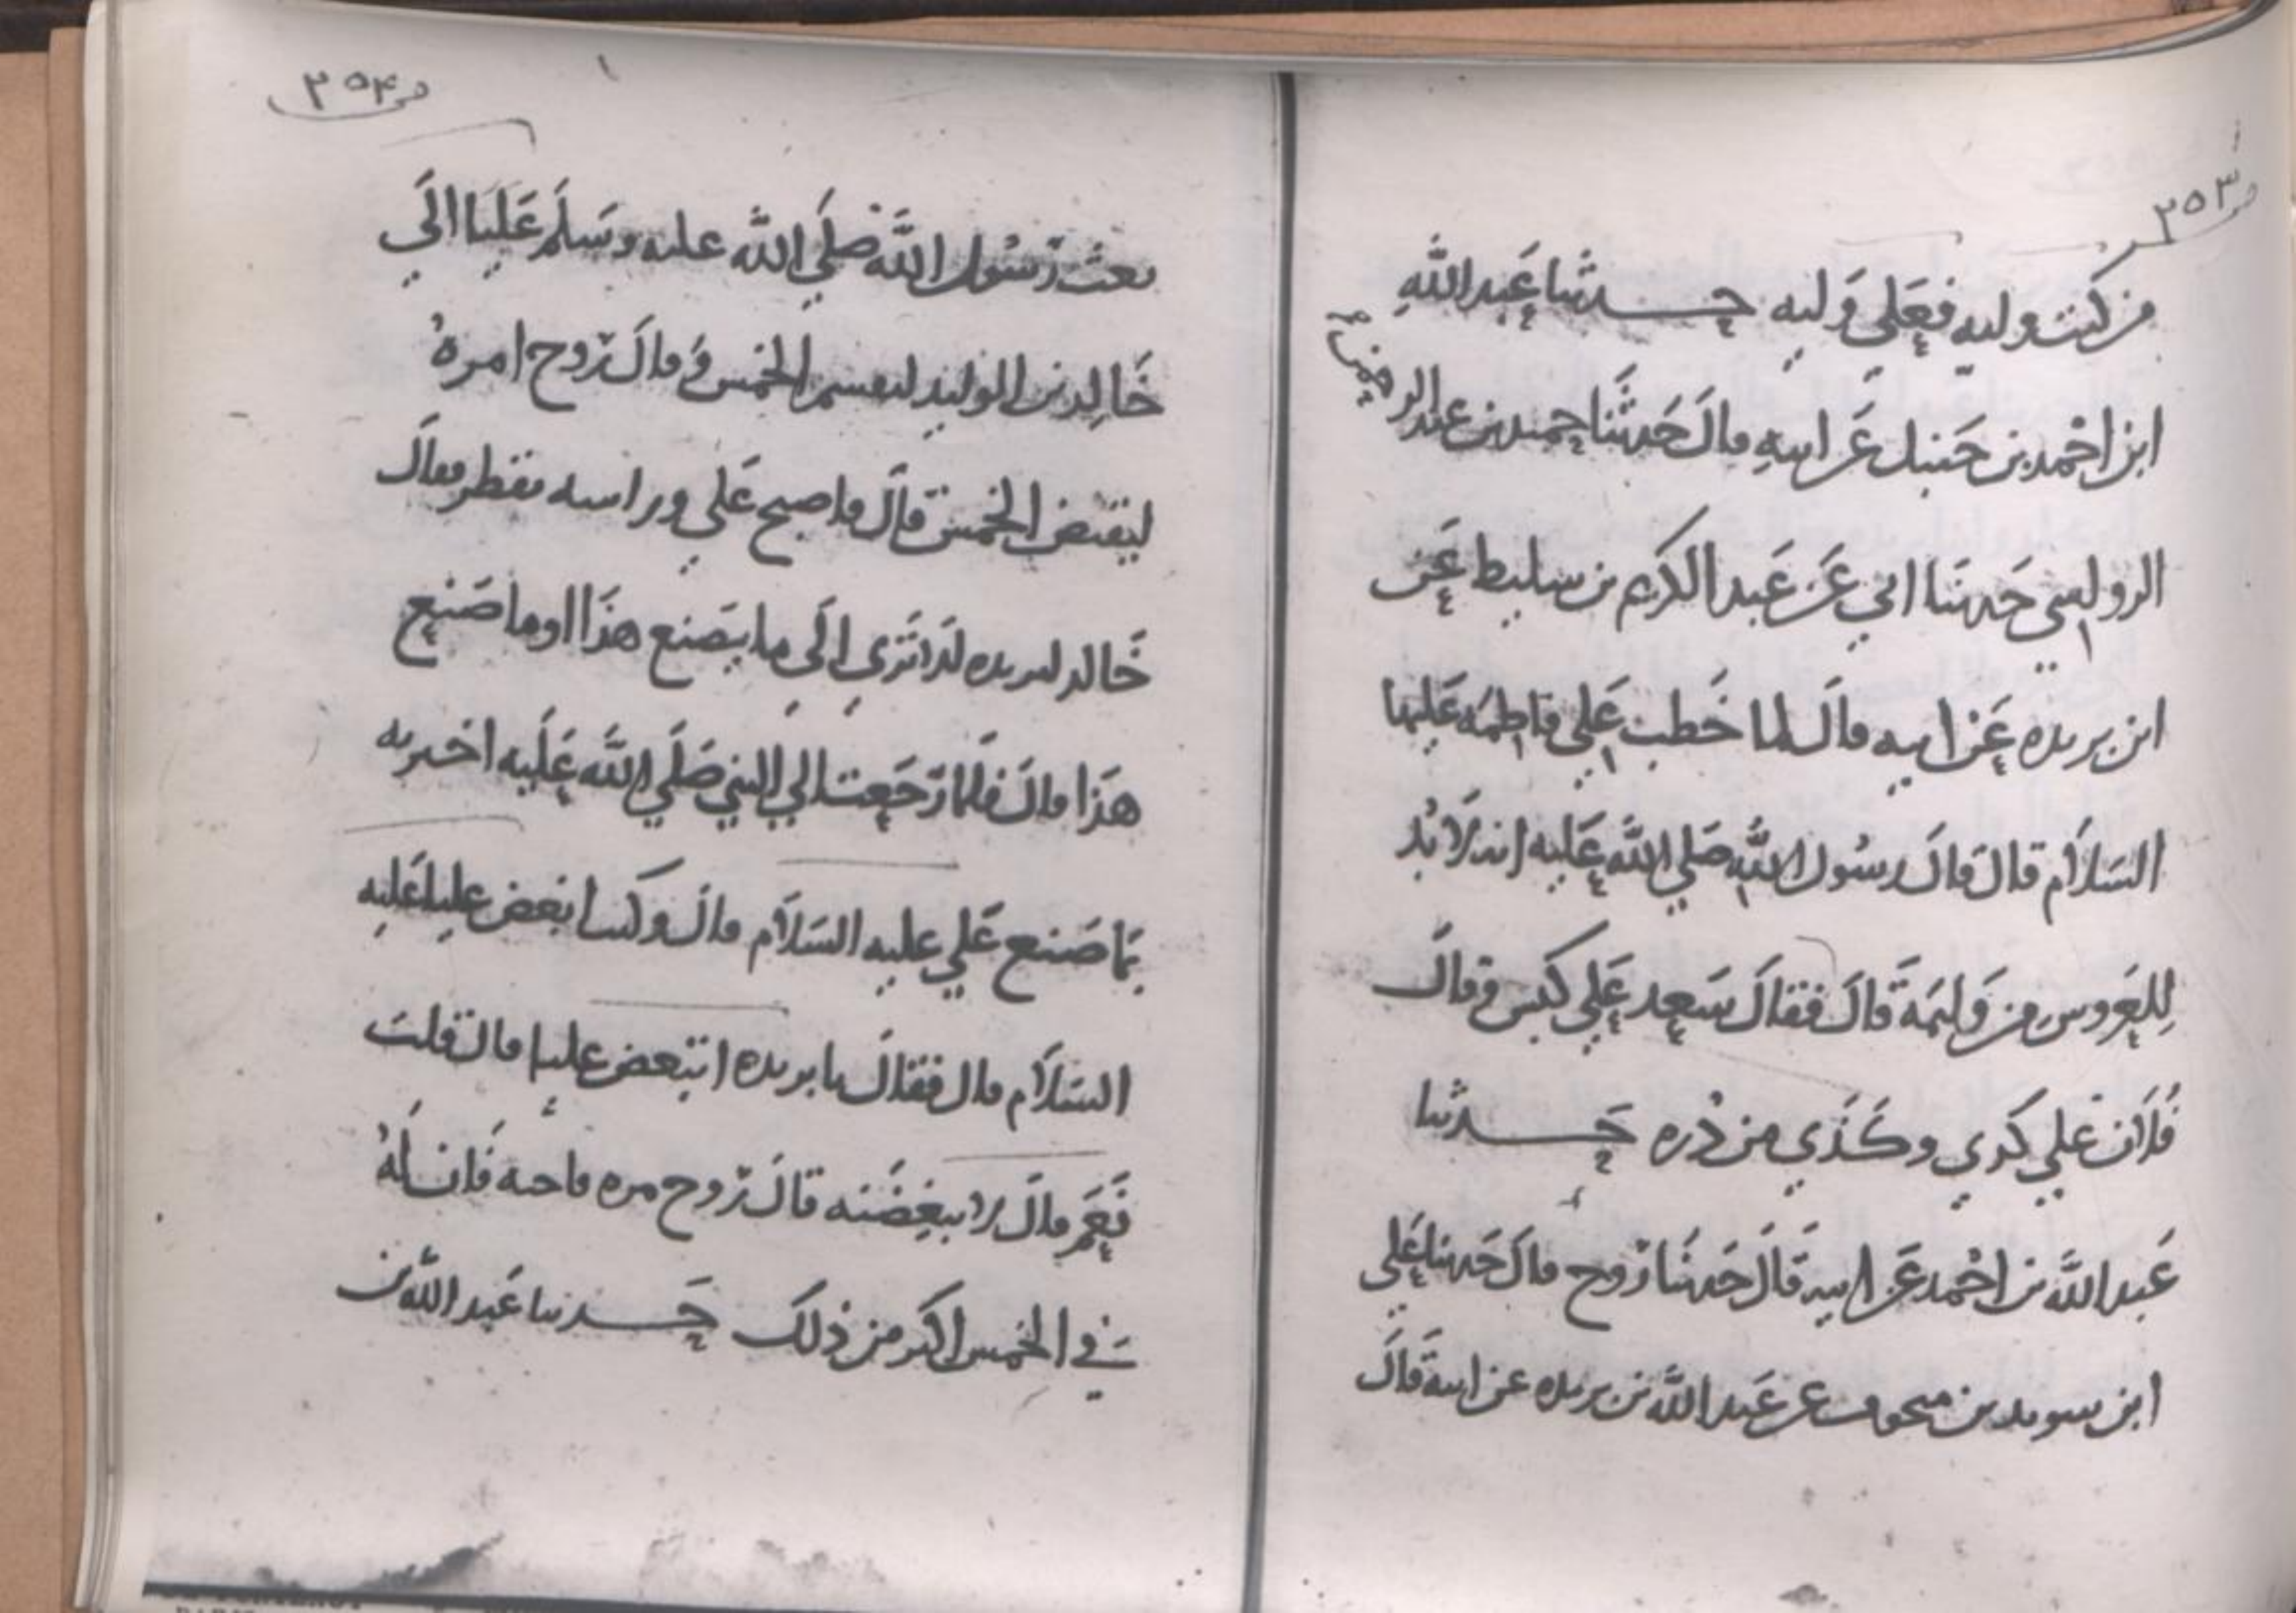 ص ٢٥٣
من كنت وليه فعلي وليه حدثنا عبدالله
ابن احمد بن حنبل عن ابيه قال حدثنا حميد بن عبدالرحمن
الرواسي حدثنا ابي عن عبد الكريم بن سليط عن
ابن بريده عن ابيه قال لما خطب علي فاطمه عليهما
السلام قال قال رسول الله صلي الله عليه انه لا بد
للعروس من وليمة قال فقال سعد علي كبش وقال
فلان علي كدي وكذي من ذره حدثنا
عبد الله بن احمد عن ابيه قال حدثنا روح قال حدثنا علي
ابن سويد بن منجوف عن عبد الله بن بريده عن ابيه قال
ص ٢٥٤
بعث رسول الله صلي الله عليه وسلم عليا الي
خالد بن الوليد ليقسم الخمس وقال روح امره
ليقبض الخمس قال فاصبح علي وراسه يقطر فقال
خالد لبريده الا تري الي ما يصنع هذا او ما صنع
هذا قال فلما رجعت الي النبي صلي الله عليه اخبرته
بما صنع علي عليه السلام قال وكنت ابغض عليا عليه
السلام قال فقال يا بريده اتبغض عليا قال قلت
نعم قال لا تبغضنه قال روح مره فاحبه فان له
في الخمس اكثر من ذلك حدثنا عبد الله بن